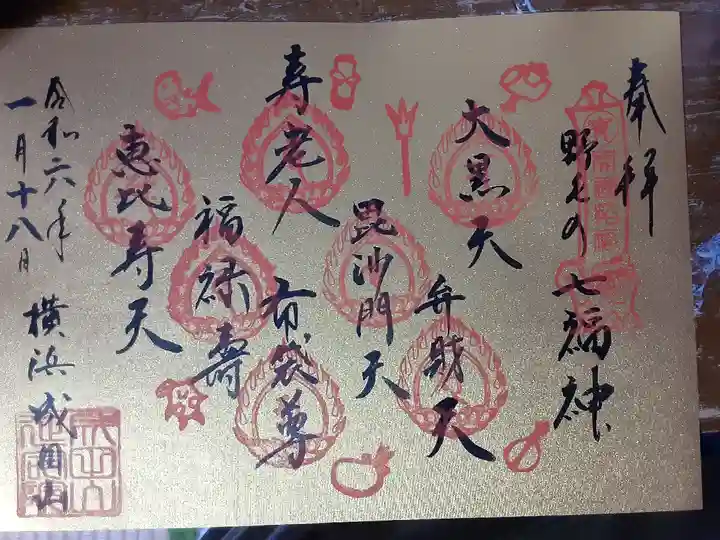 奉拝
野毛の七福神
大黒天
弁財天
毘沙門天
寿老人
布袋尊
福禄壽
恵比寿天
令和六年
一月十八日
横浜成田山